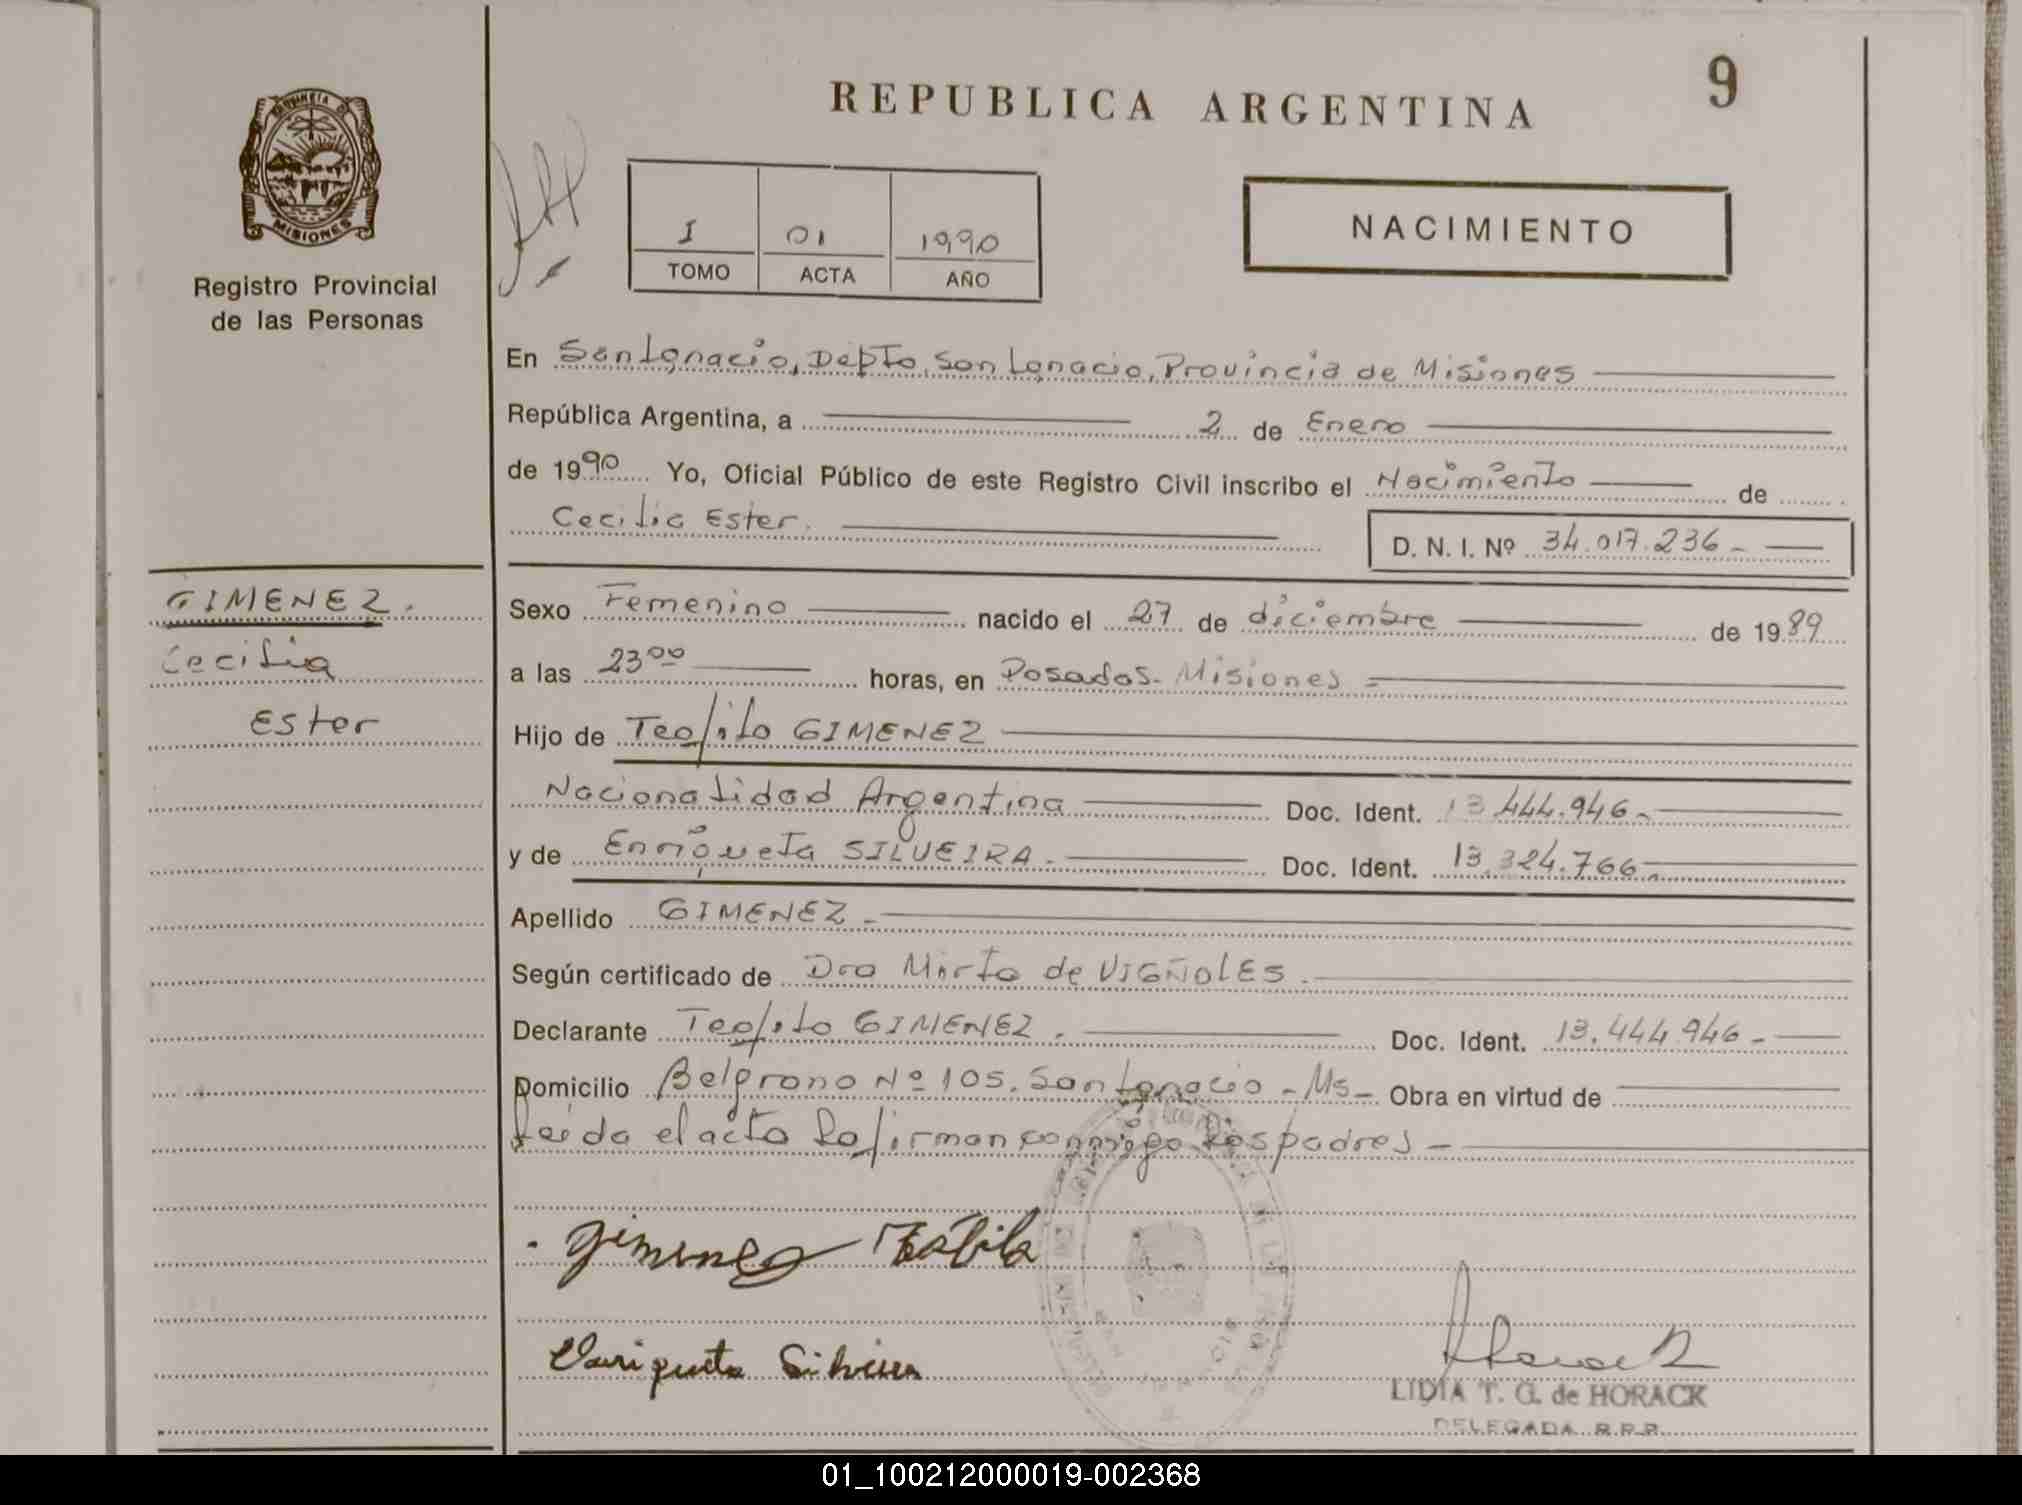 REPUBLICA ARGENTINA
9
PROVINCIA DE
MISIONES
Registro Provincial
de las Personas
I 01 1990
TOMO ACTA AÑO
NACIMIENTO
En San Ignacio, Depto, San Ignacio, Provincia de Misiones
República Argentina, a 2 de Enero
de 1990 Yo, Oficial Público de este Registro Civil inscribo el Nacimiento de
Cecilia Ester.
D. N. I. Nº 34.017.236-
GIMENEZ.
Cecilia
Ester
Sexo Femenino nacido el 27 de diciembre de 1989
a las 23 00 horas, en Posadas-Misiones
Hijo de Teofilo GIMENEZ
Nacionalidad Argentina Doc. Ident. 13.444.946-
y de Enriqueta SILVEIRA. Doc. Ident. 13.324.766.
Apellido GIMENEZ-
Según certificado de Dra Mirta de VIGÑOLES.
Declarante Teofilo GIMENEZ. Doc. Ident. 13.444.946-
Domicilio Belgrano Nº 105. San Ignacio - Ms- Obra en virtud de
Leida el acta la firman conmigo los padres-
Gimenez
Enriqueta Silveira
LIDIA T. G. de HORACK
DELEGADA R.P.P.
01_100212000019-002368